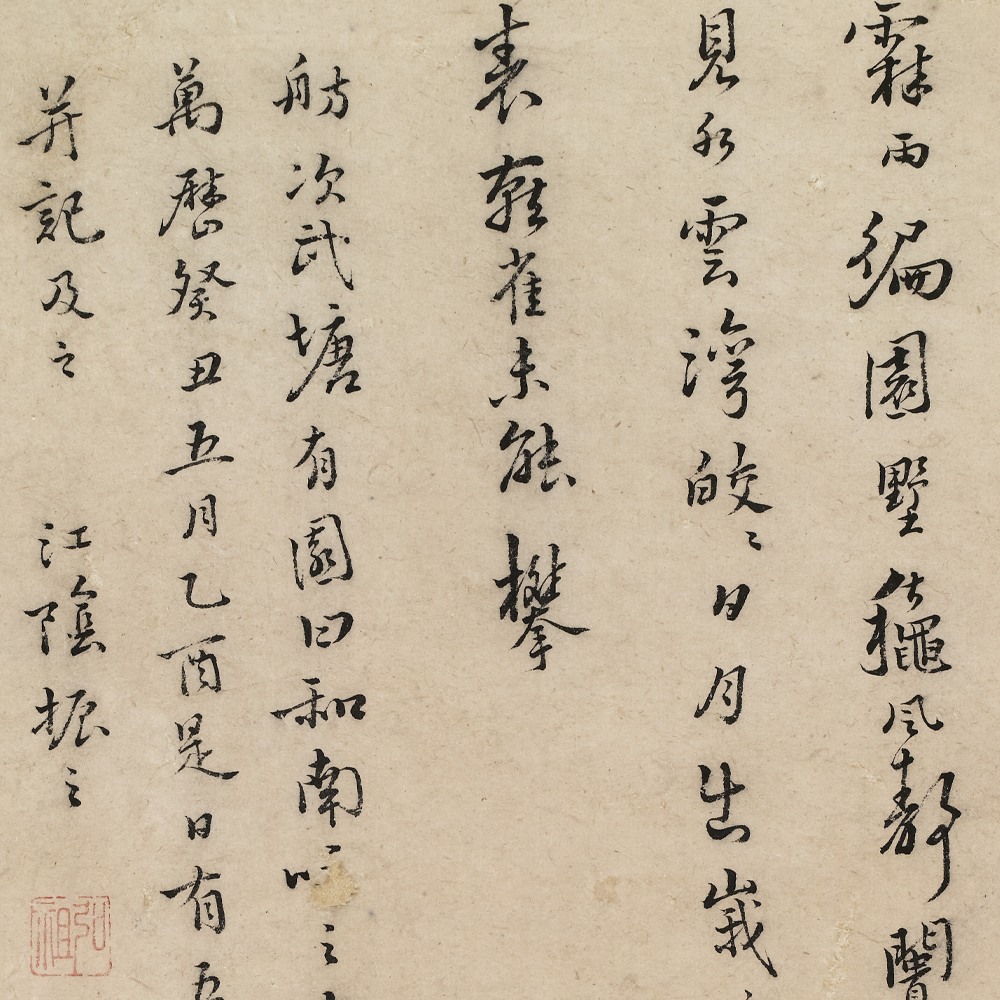 霖雨徧園墅穐風靜闇
見水雲灣皎〻日月出嶻
表轅雀未能攀
舫次武塘有園曰和南
萬曆癸丑五月乙酉是日有五
并記及之 江陰振之
弘祖